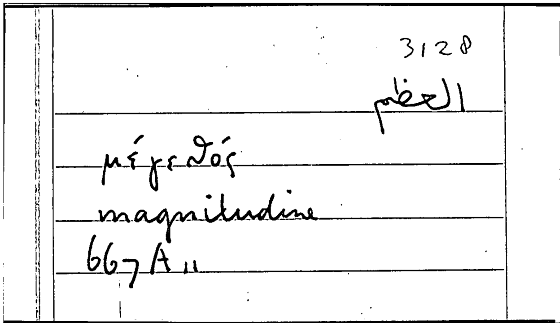 3128
العظم
μέγεθός
magnitudine
667 A 11